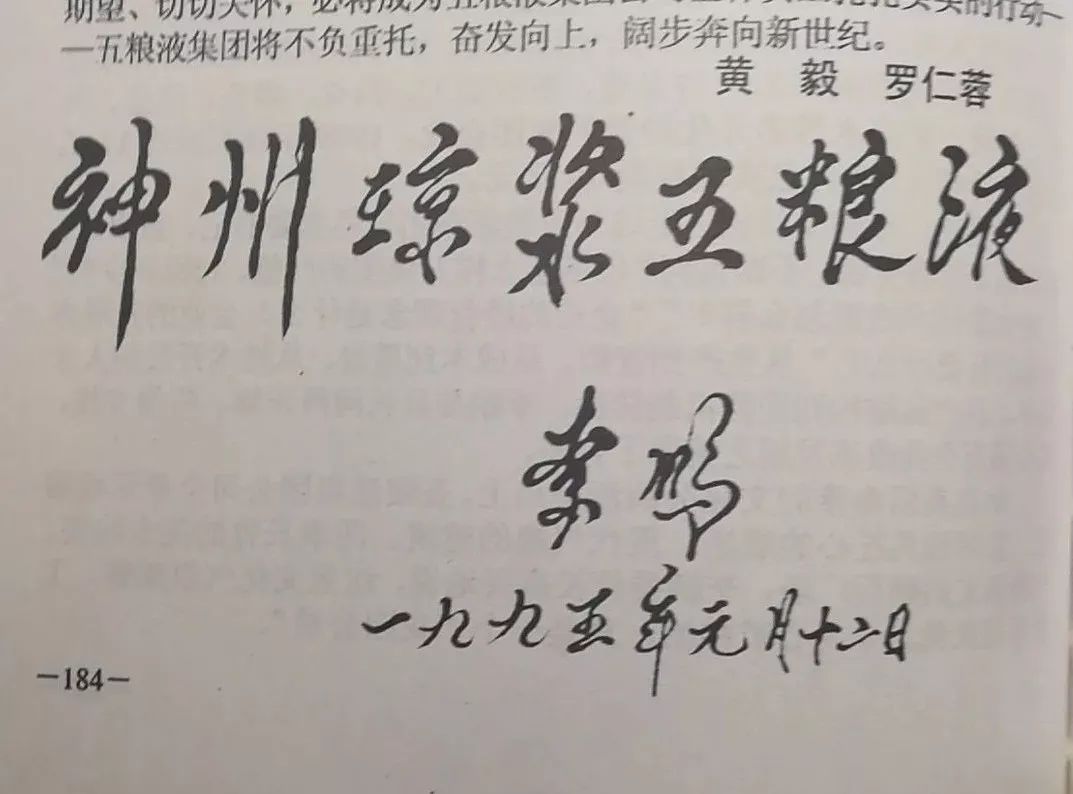 期望、切切关怀，必将成为五粮液集团
—五粮液集团将不负重托，奋发向上，阔步奔向新世纪。
黄 毅 罗仁蓉
神州琼浆五粮液
李鹏
一九九五年元月十二日
—184—